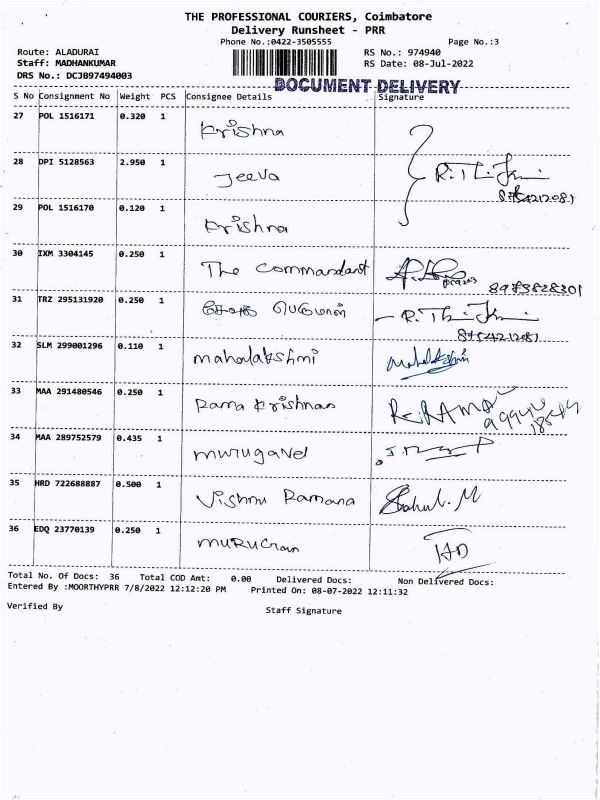 THE PROFESSIONAL COURIERS, Coimbatore
Delivery Runsheet - PRR
Phone No.:0422-3505555 Page No.:3
Route: ALADURAI RS No.: 974940
Staff: MADHANKUMAR RS Date: 08-Jul-2022
DRS No.: DCJB97494003
DOCUMENT DELIVERY
S No Consignment No Weight PCS Consignee Details Signature
27 POL 1516171 0.320 1 Krishna
28 DPI 5128563 2.950 1 Jeeva
29 POL 1516170 0.120 1 Krishna
30 IXM 3304145 0.250 1 The Commandant 8983828301
31 TRZ 295131920 0.250 1
32 SLM 299001296 0.110 1 mahalakshmi
33 MAA 291480546 0.250 1 Rama Krishnan
34 MAA 289752579 0.435 1 murugavel
35 HRD 722688887 0.500 1 Vishnu Ramana
36 EDQ 23770139 0.250 1 murugan
Total No. Of Docs: 36 Total COD Amt: 0.00 Delivered Docs: Non Delivered Docs:
Entered By :MOORTHYPRR 7/8/2022 12:12:20 PM Printed On: 08-07-2022 12:11:32
Verified By Staff Signature